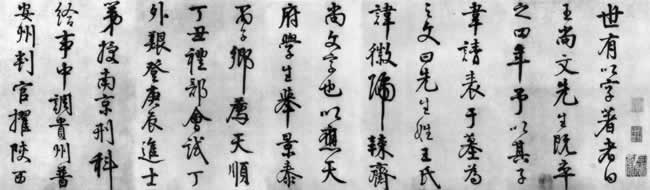 世有以字著者曰
王尚文先生既卒
之四年予以其子
韋請表于墓為
之文曰先生姓王氏
諱徽號辣齋
尚文字也以應天
府學生舉景泰
丙子鄉薦天順
丁丑禮部會試丁
外艱登庚辰進士
第授南京刑科
給事中調貴州普
安州判官擢陝西